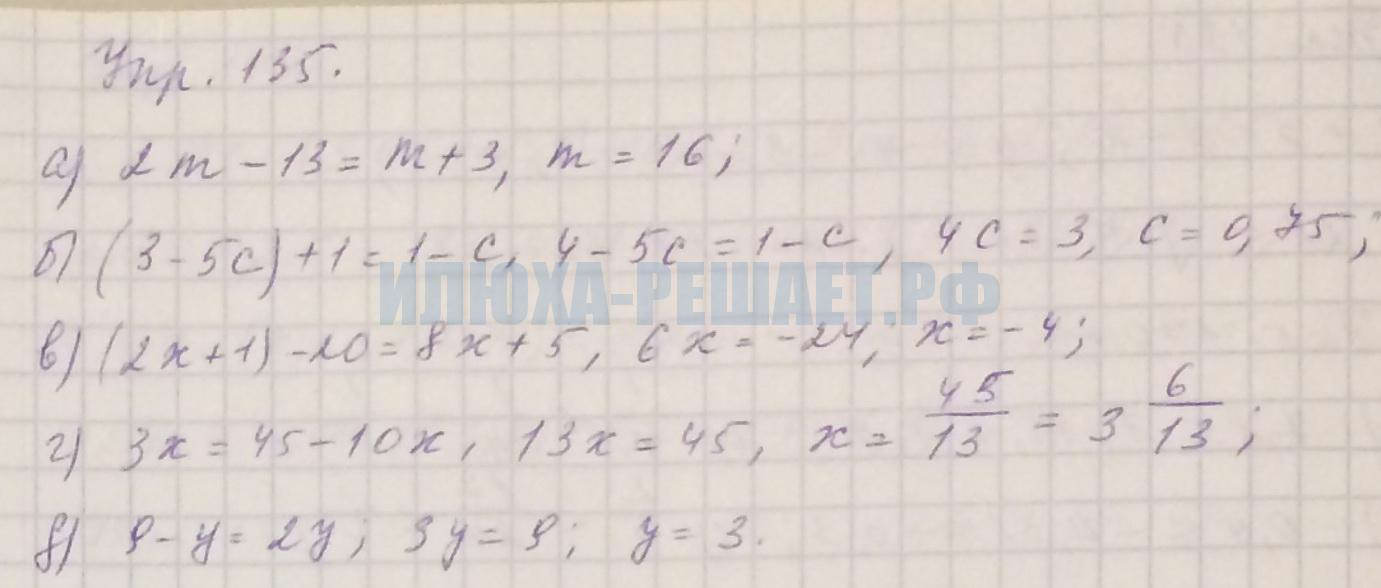 Упр. 135.
а) 2m - 13 = m + 3, m = 16;
б) (3 - 5c) + 1 = 1 - c, 4 - 5c = 1 - c, 4c = 3, c = 0,75;
ИЛЮХА-РЕШАЕТ.РФ
в) (2x + 1) - 20 = 8x + 5, 6x = -24; x = -4;
г) 3x = 45 - 10x, 13x = 45, x = 45/13 = 3 6/13;
д) 9 - y = 2y; 3y = 9; y = 3.